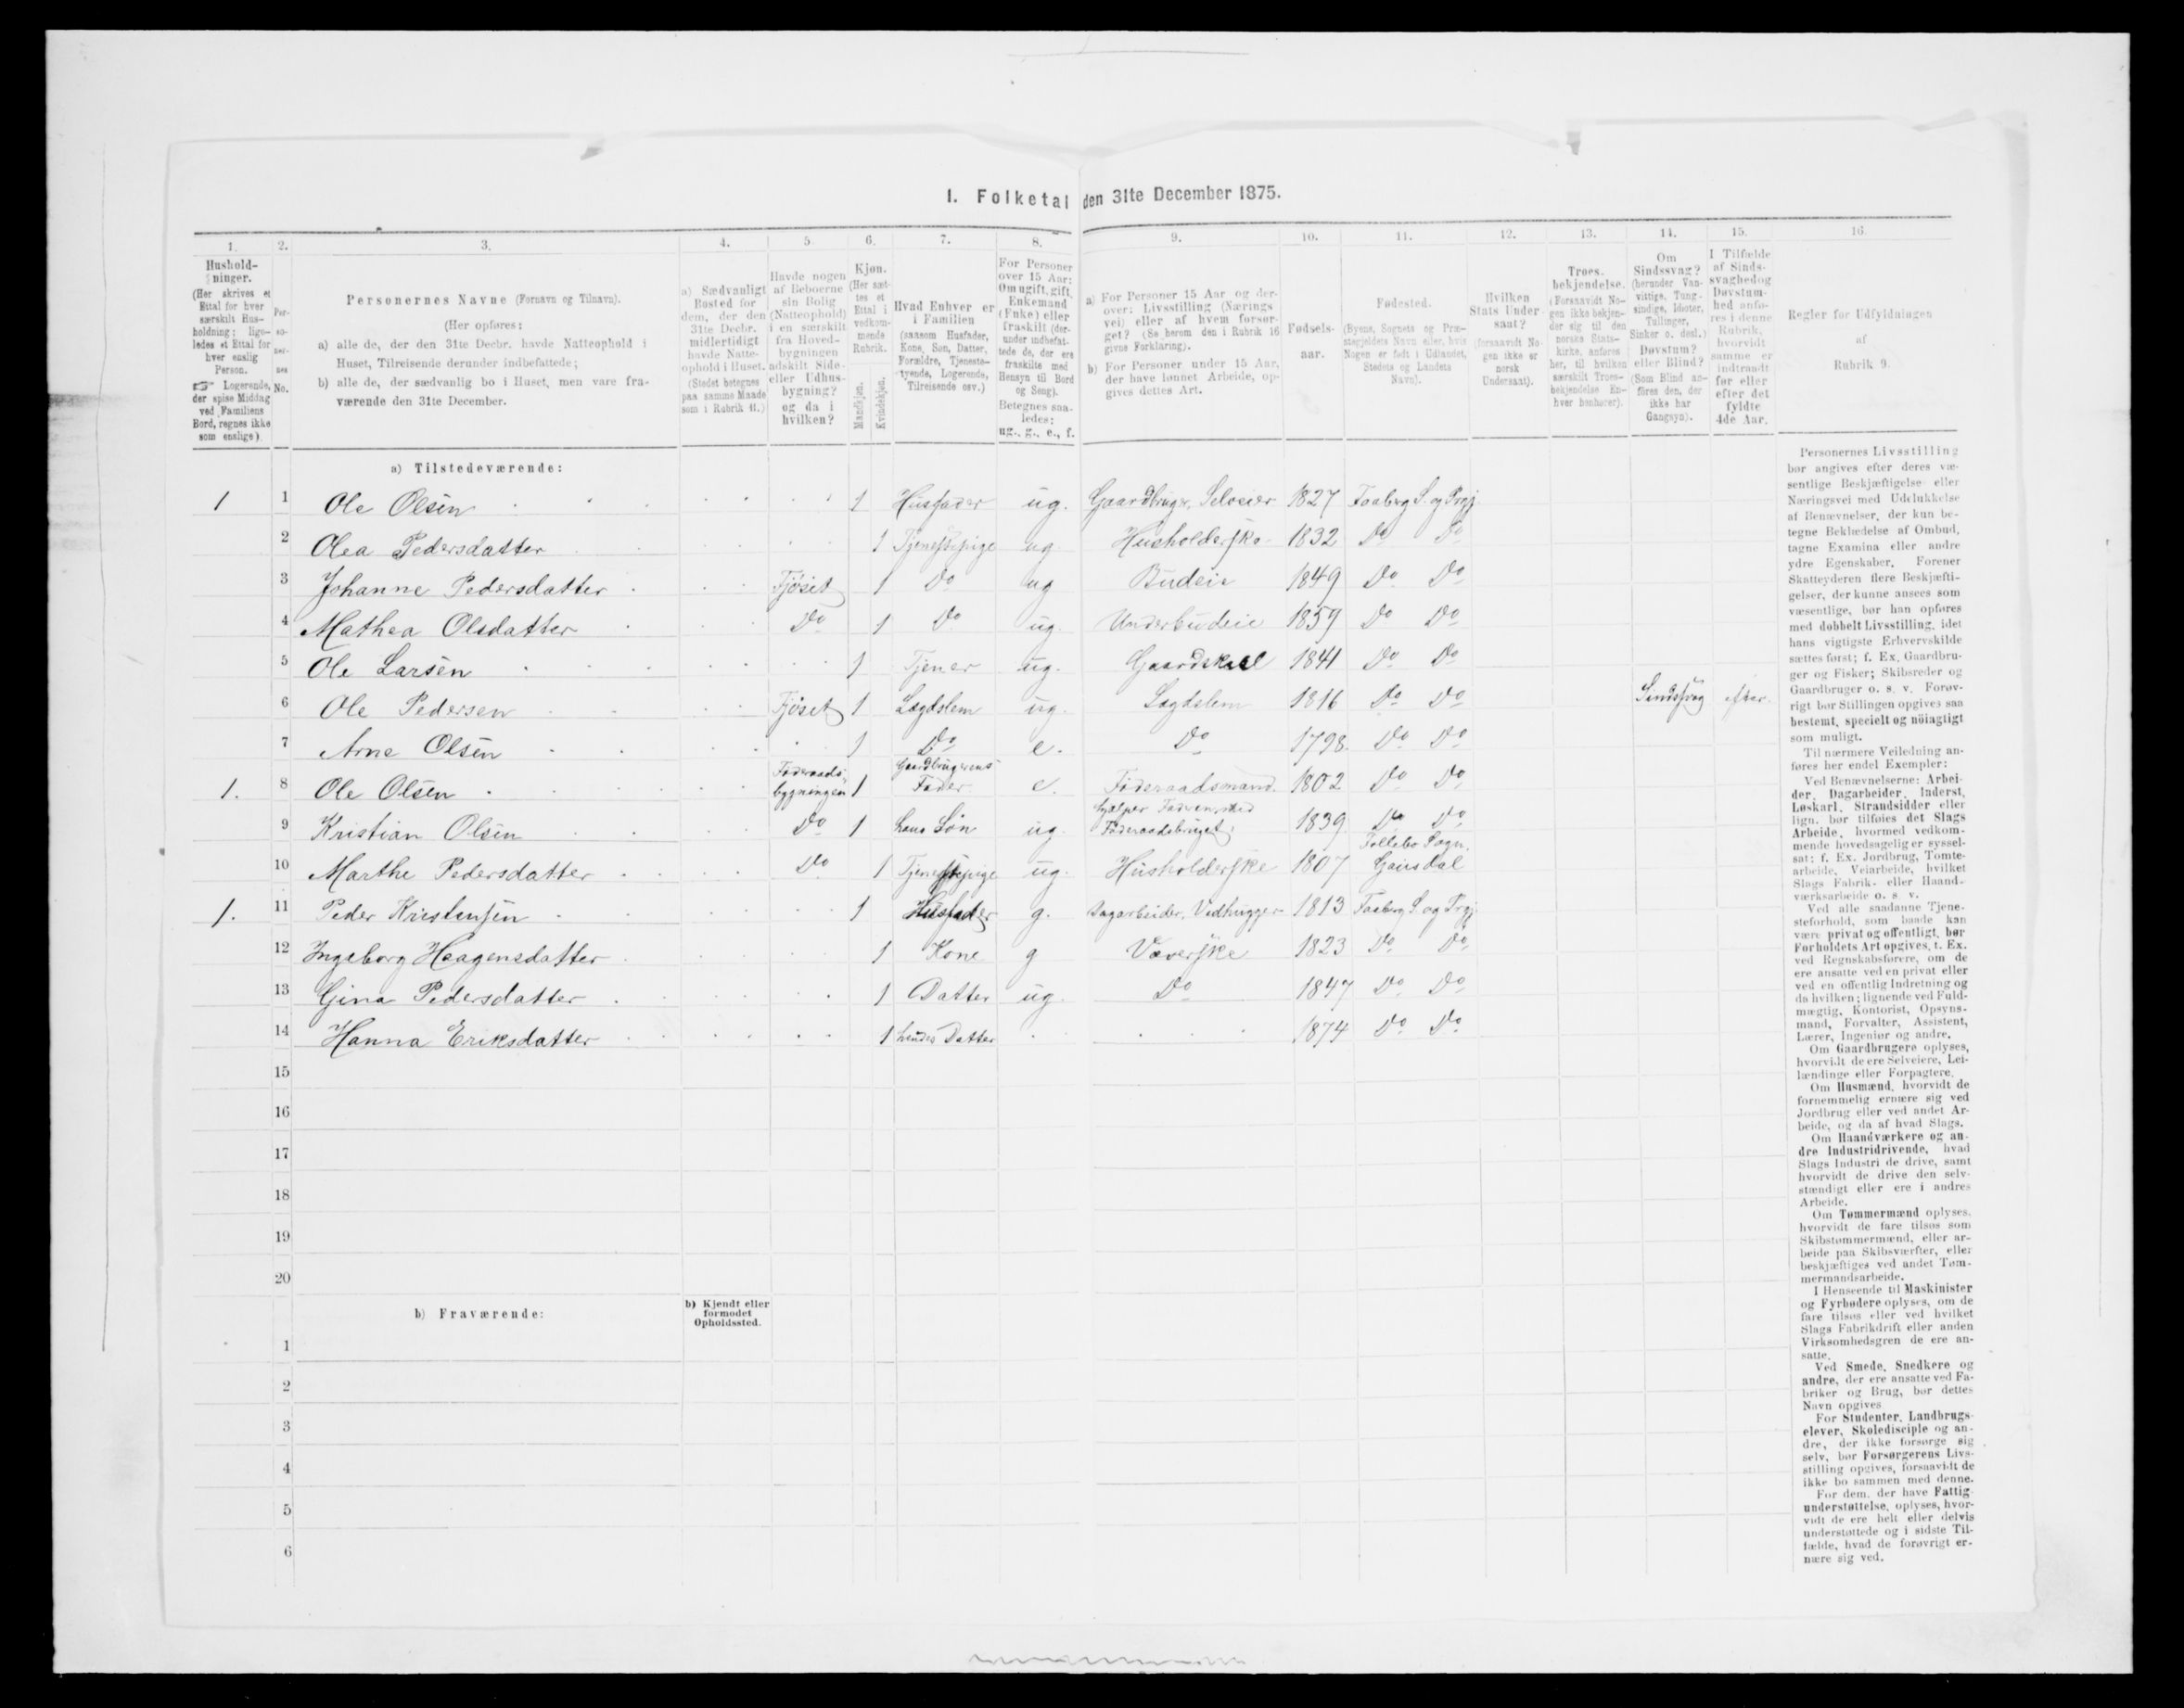 1. Folketal den 31te December 1875.
1. 2. 3. 4. 5 6. 7. 8. 9. 10. 11. 12. 13. 14. 15. 16.
Hushold-
ninger.
(Her skrives et
Ettal for hver
særskilt Hus-
holdning; lige-
ledes et Ettal for
hver enslig
Person.
☞ Logerende,
der spise Middag
ved Familiens
Bord, regnes ikke
som enslige).
Per-
so-
ner-
nes
No.
Personernes Navne (Fornavn og Tilnavn).
(Her opføres:
a) alle de, der den 31te Decbr. havde Natteophold i
Huset, Tilreisende derunder indbefattede;
b) alle de, der sædvanlig bo i Huset, men vare fra-
værende den 31te December.
a) Sædvanligt
Bosted for
dem, der den
31te Decbr.
midlertidigt
havde Natte-
ophold i Huset.
(Stedet betegnes
paa samme Maade
som i Rubrik 11.)
Havde nogen
af Beboerne
sin Bolig
(Natteophold)
i en særskilt
fra Hoved-
bygningen
adskilt Side-
eller Udhus-
bygning?
og da i
hvilken?
Kjøn.
(Her sæt-
tes et
Ettal i
vedkom-
mende
Rubrik.
Mandkjøn.
Kvindekjøn.
Hvad Enhver er
i Familien
(saasom Husfader,
Kone, Søn, Datter,
Forældre, Tjeneste-
tyende, Logerende,
Tilreisende osv.)
For Personer
over 15 Aar:
Om ugift, gift,
Enkemand
(Enke) eller
fraskilt (der-
under indbefat-
tede de, der ere
fraskilte med
Hensyn til Bord
og Seng).
Betegnes saa-
ledes:
ug., g., e., f.
a) For Personer 15 Aar og der-
over: Livsstilling (Nærings
vei) eller af hvem forsør-
get? (Se herom den i Rubrik 16
givne Forklaring).
b) For Personer under 15 Aar,
der have lønnet Arbeide, op-
gives dettes Art.
Fødsels-
aar.
Fødested.
(Byens, Sognets og Præ-
stegjeldets Navn eller, hvis
Nogen er født i Udlandet,
Stedets og Landets
Navn).
Hvilken
Stats Under-
saat?
(forsaavidt No-
gen ikke er
norsk
Undersaat).
Troes-
bekjendelse.
(Forsaavidt No-
gen ikke bekjen-
der sig til den
norske Stats-
kirke, anføres
her, til hvilken
særskilt Troes-
bekjendelse En-
hver henhører).
Om
Sindssvag?
(herunder Van-
vittige, Tung-
sindige, Idioter,
Tullinger,
Sinker o. desl.)
Døvstum?
eller Blind?
(Som Blind an-
føres den, der
ikke har
Gangsyn).
I Tilfælde
af Sinds-
svaghedog
Døvstum-
hed anfø-
res i denne
Rubrik,
hvorvidt
samme er
indtraadt
før eller
efter det
fyldte
4de Aar.
Regler for Udfyldningen
af
Rubrik 9.
a) Tilstedeværende:
1 1 Ole Olsen 1 Husfader ug. Gaardbruger, Selveier 1827 Faaberg S. og Prgj.
2 Olea Pedersdatter 1 Tjenestepige ug Husholderske 1832 Do Do
3 Johanne Pedersdatter Fjøset 1 Do ug Budeie 1849 Do Do
4 Mathea Olsdatter Do 1 Do ug. Underbudeie 1859 Do Do
5 Ole Larsen 1 Tjener ug. Gaardskarl 1841 Do Do
6 Ole Pedersen Fjøset 1 Lægdslem ug. Lægdslem 1816 Do Do Sindssvag efter.
7 Arne Olsen 1 Do e. Do 1798. Do Do
1. 8 Ole Olsen Føderaads-
bygningen 1 Gaardbrugerens
Fader e. Føderaadsmand. 1802 Do Do
9 Kristian Olsen Do 1 hans Søn ug. Hjelper Faderen med
Føderaadsbruget. 1839 Do Do
10 Marthe Pedersdatter Do 1 Tjenestepige ug. Husholderske 1807 Follebo Sogn,
Gausdal
1. 11 Peder Kristensen 1 Husfader g. Dagarbeider, Vedhugger 1813 Faaberg S. og Prgj.
12 Ingeborg Haagensdatter 1 Kone g Væverske 1823 Do Do
13 Gina Pedersdatter 1 Datter ug. Do 1847 Do Do
14 Hanna Eriksdatter 1 hendes Datter 1874 Do Do
15
16
17
18
19
20
b) Fraværende:
b) Kjendt eller
formodet
Opholdssted.
1
2
3
4
5
6
Personernes Livsstilling
bør angives efter deres væ-
sentlige Beskjæftigelse eller
Næringsvei med Udelukkelse
af Benævnelser, der kun be-
tegne Beklædelse af Ombud,
tagne Examina eller andre
ydre Egenskaber. Forener
Skatteyderen flere Beskjæfti-
gelser, der kunne ansees som
væsentlige, bør han opføres
med dobbelt Livsstilling, idet
hans vigtigste Erhvervskilde
sættes først; f. Ex. Gaardbru-
ger og Fisker; Skibsreder og
Gaardbruger o. s. v. Forøv-
rigt bør Stillingen opgives saa
bestemt, specielt og nöiagtigt
som muligt.
Til nærmere Veiledning an-
føres her endel Exempler:
Ved Benævnelserne: Arbei-
der, Dagarbeider, Inderst,
Løskarl, Strandsidder eller
lign. bør tilføies det Slags
Arbeide, hvormed vedkom-
mende hovedsagelig er syssel-
sat; f. Ex. Jordbrug, Tomte-
arbeide, Veiarbeide, hvilket
Slags Fabrik- eller Haand-
værksarbeide o. s. v.
Ved alle saadanne Tjene-
steforhold, som baade kan
være privat og offentligt, bør
Forholdets Art opgives, t. Ex.
ved Regnskabsførere, om de
ere ansatte ved en privat eller
ved en offentlig Indretning og
da hvilken; lignende ved Fuld-
mægtig, Kontorist, Opsyns-
mand, Forvalter, Assistent,
Lærer, Ingeniør og andre.
Om Gaardbrugere oplyses,
hvorvidt de ere Selveiere, Lei-
lændinge eller Forpagtere.
Om Husmænd, hvorvidt de
fornemmelig ernære sig ved
Jordbrug eller ved andet Ar-
beide, og da af hvad Slags.
Om Haandværkere og an-
dre Industridrivende, hvad
Slags Industri de drive, samt
hvorvidt de drive den selv-
stændigt eller ere i andres
Arbeide.
Om Tømmermænd oplyses,
hvorvidt de fare tilsøs som
Skibstømmermænd, eller ar-
beide paa Skibsværfter, eller
beskjæftiges ved andet Tøm-
mermandsarbeide.
I Henseende til Maskinister
og Fyrbødere oplyses, om de
fare tilsøs eller ved hvilket
Slags Fabrikdrift eller anden
Virksomhedsgren de ere an-
satte.
Ved Smede, Snedkere og
andre, der ere ansatte ved Fa-
briker og Brug, bør dettes
Navn opgives
For Studenter, Landbrugs-
elever, Skoledisciple og an-
dre, der ikke forsørge sig
selv, bør Forsørgerens Livs-
stilling opgives, forsaavidt de
ikke bo sammen med denne.
For dem, der have Fattig-
understøttelse, oplyses, hvor-
vidt de ere helt eller delvis
understøttede og i sidste Til-
fælde, hvad de forøvrigt er-
nære sig ved.